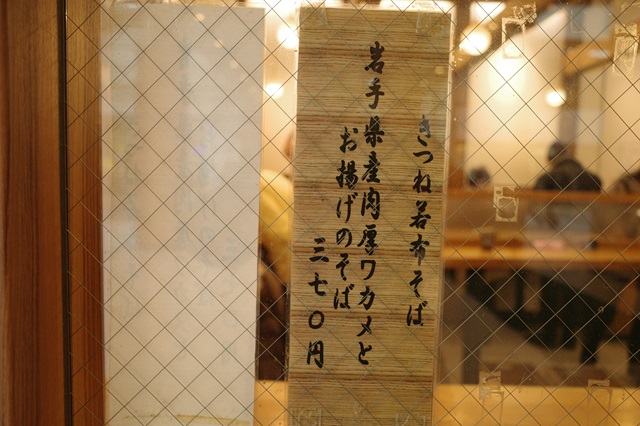 きつね若布そば
岩手県産肉厚ワカメと
お揚げのそば
三七〇円